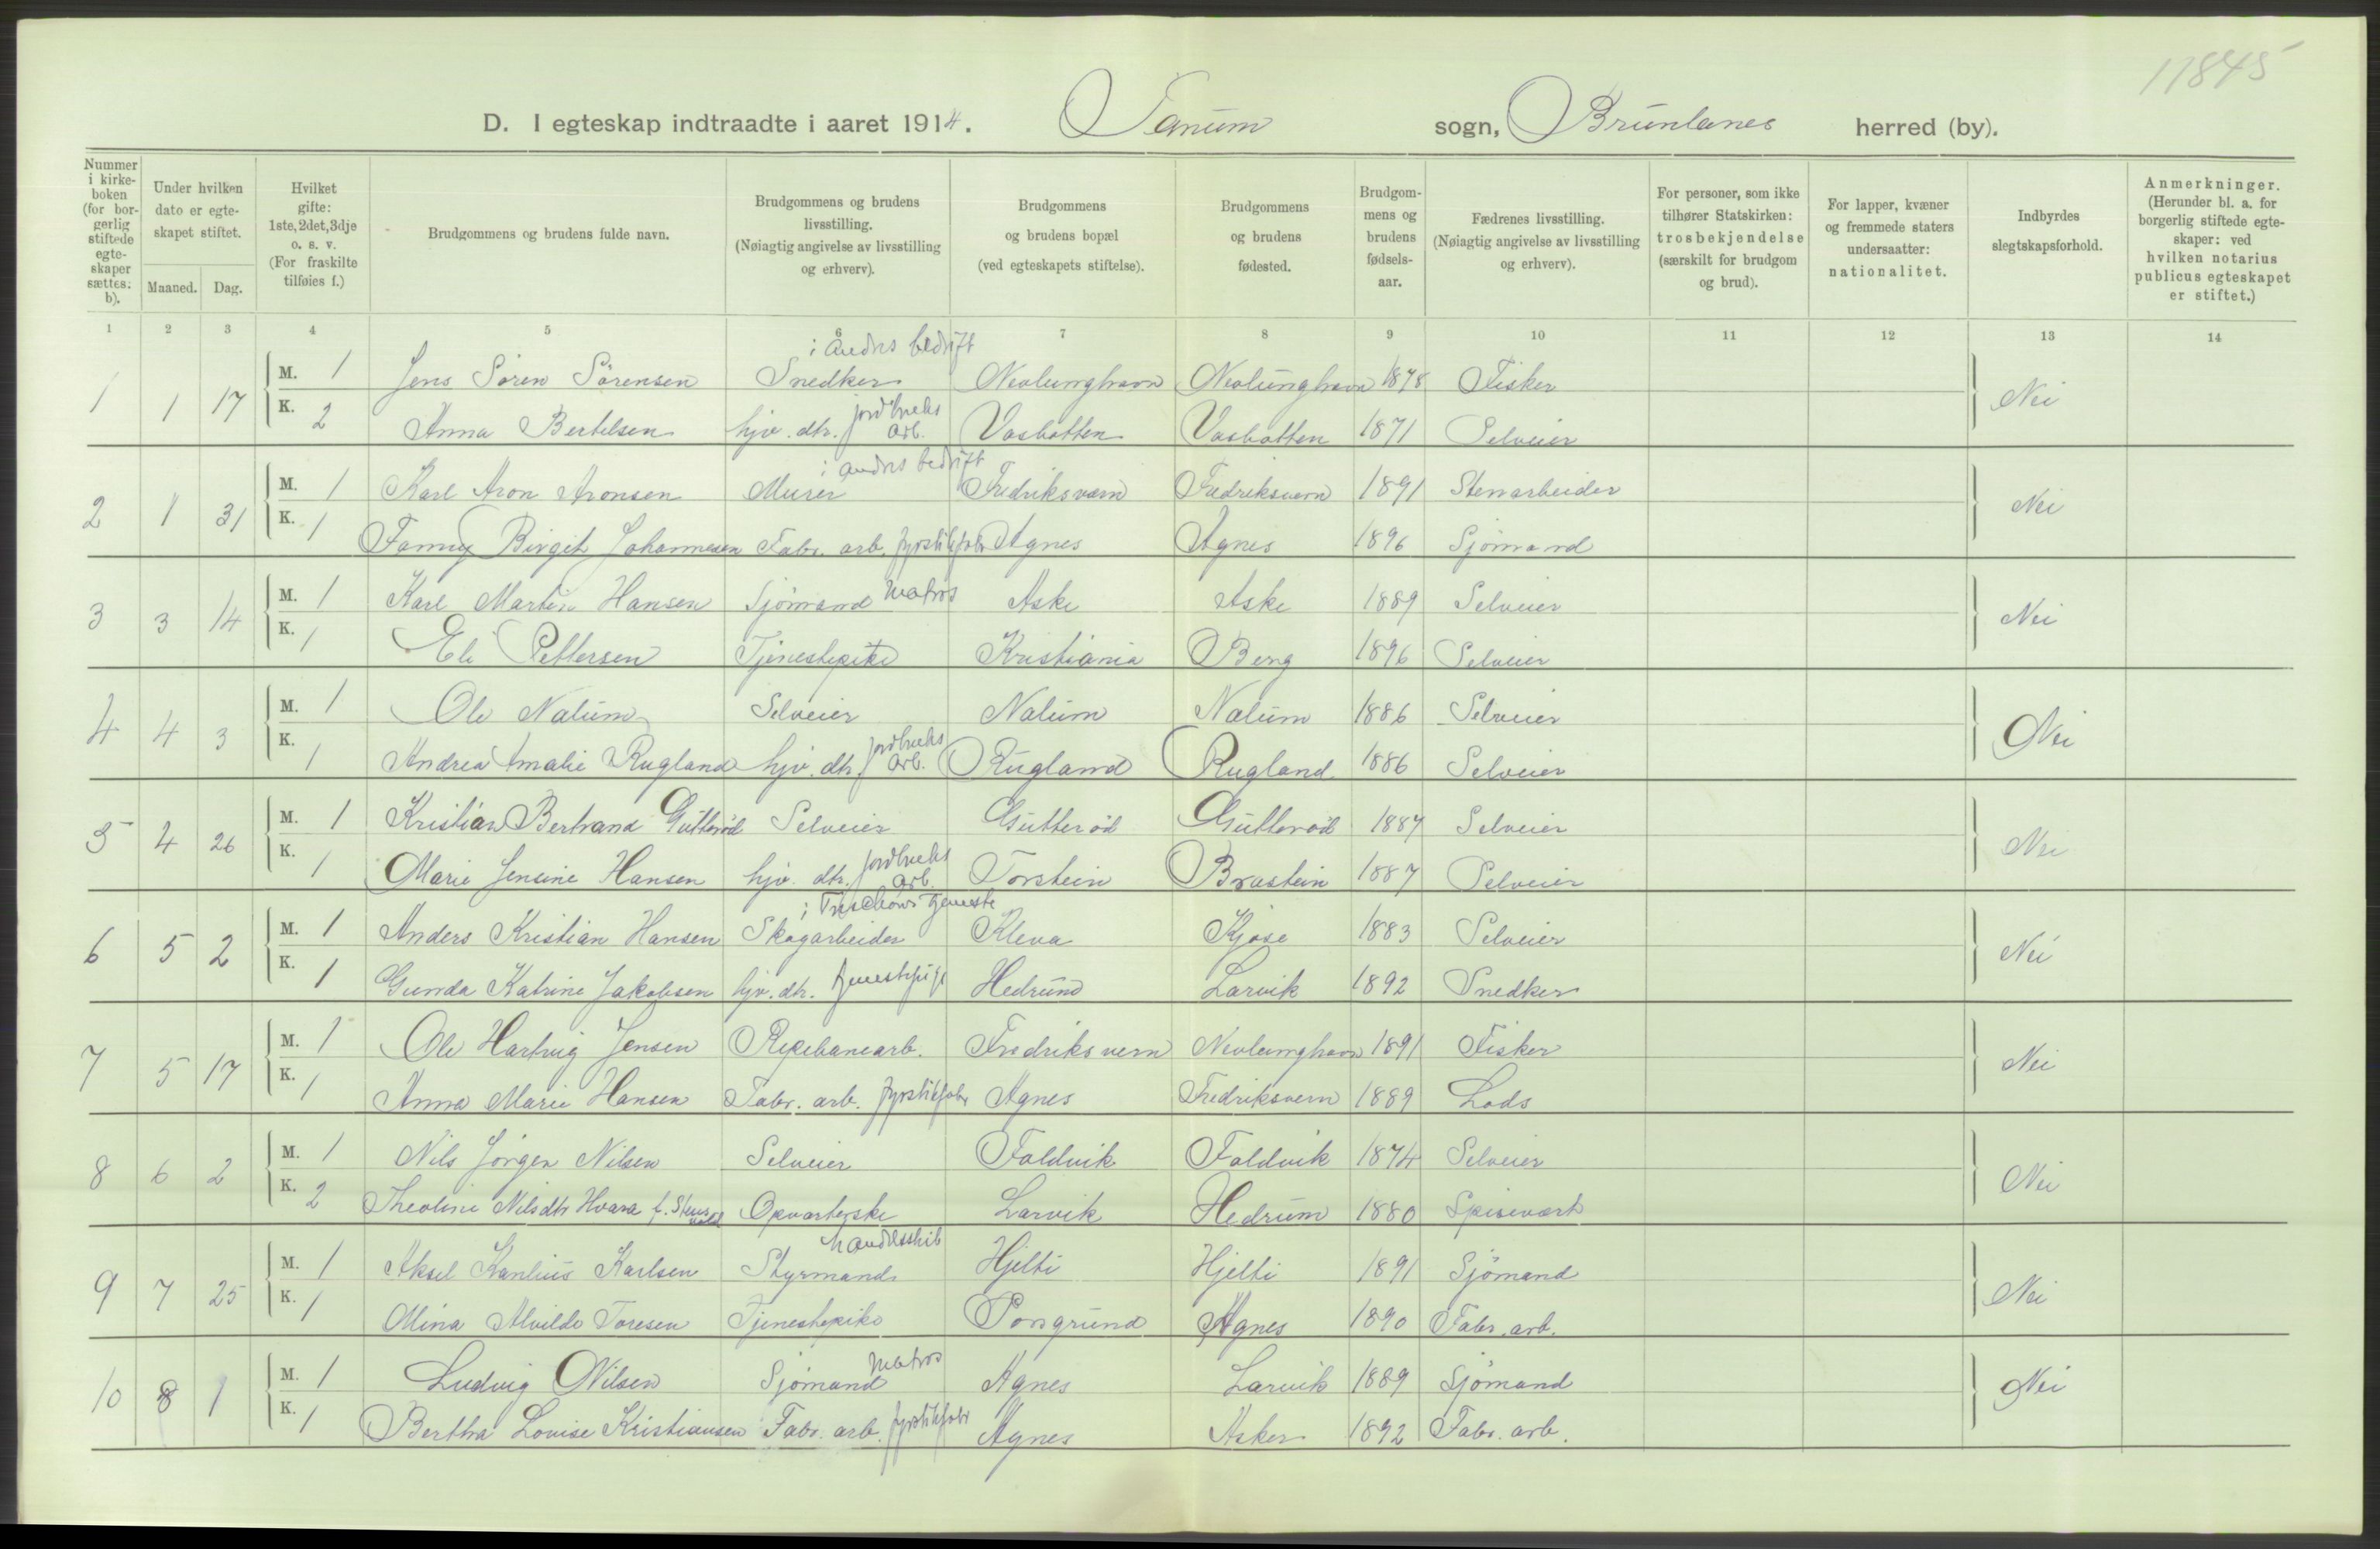 11845
D. I egteskap indtraadte i aaret 1914. Tanum sogn, Brunlanes herred (by).
Nummer i kirkeboken (for borgerlig stiftede egteskaper sættes: b).
Under hvilken dato er egteskapet stiftet.
Maaned. Dag.
Hvilket gifte: 1ste, 2det, 3dje o. s. v. (For fraskilte tilføies f.)
Brudgommens og brudens fulde navn.
Brudgommens og brudens livsstilling. (Nøiagtig angivelse av livsstilling og erhverv).
Brudgommens og brudens bopæl (ved egteskapets stiftelse).
Brudgommens og brudens fødested.
Brudgommens og brudens fødselsaar.
Fædrenes livsstilling. (Nøiagtig angivelse av livsstilling og erhverv).
For personer, som ikke tilhører Statskirken: trosbekjendelse (særskilt for brudgom og brud).
For lapper, kvæner og fremmede staters undersaatter: nationalitet.
Indbyrdes slegtskapsforhold.
Anmerkninger. (Herunder bl. a. for borgerlig stiftede egteskaper: ved hvilken notarius publicus egteskapet er stiftet.)
1 2 3 4 5 6 7 8 9 10 11 12 13 14
i andres bedrift
1 1 17 M. 1 Jens Sören Sörensen Snedker Nevlunghavn Nevlunghavn 1878 Fisker Nei
K. 2 Anna Bertelsen hjv. dtr. jordbruks arb. Vasbotten Vasbotten 1871 Selveier
i andres bedrift
2 1 31 M. 1 Karl Aron Aronsen Murer Fredriksværn Fredriksvern 1891 Stenarbeider Nei
K. 1 Fanny Birgit Johannesen Fabr. arb. fyrstikfabr Agnes Agnes 1896 Sjömand
3 3 14 M. 1 Karl Martin Hansen Sjömand Matros Aske Aske 1889 Selveier Nei
K. 1 Eli Pettersen Tjenestepike Kristiania Berg 1896 Selveier
4 4 3 M. 1 Ole Nalum Selveier Nalum Nalum 1886 Selveier Nei
K. 1 Andrea Amalie Rugland hjv. dtr. jordbruks arb. Rugland Rugland 1886 Selveier
5 4 26 M. 1 Kristian Bertrand Gutteröd Selveier Gutteröd Gutteröd 1887 Selveier Nei
K. 1 Marie Jensine Hansen hjv. dtr. jordbruks arb. Torstein Brastein 1887 Selveier
i Treschows tjeneste
6 5 2 M. 1 Anders Kristian Hansen Skogarbeider Kleva Kjose 1883 Selveier Nei
K. 1 Gunda Katrine Jakobsen hjv. dtr. tjenestepige Hedrum Larvik 1892 Snedker
7 5 17 M. 1 Ole Hartvig Jensen Repebanearb. Fredriksvern Nevlunghavn 1891 Fisker Nei
K. 1 Anna Marie Hansen Fabr. arb. fyrstikfabr Agnes Fredriksvern 1889 Lods
8 6 2 M. 1 Nils Jörgen Nilsen Selveier Foldvik Foldvik 1874 Selveier Nei
K. 2 Theoline Nilsdtr Hvara f. Opvarterske Larvik Hedrum 1880 Spisevært
handelsskib
9 7 25 M. 1 Aksel Karlsen Styrmand Hjelti Hjelti 1891 Sjömand Nei
K. 1 Mina Alvilde Toresen Tjenestepike Porsgrund Agnes 1890 Fabr. arb.
10 8 1 M. 1 Ludvig Nilsen Sjömand Matros Agnes Larvik 1889 Sjömand Nei
K. 1 Bertha Lovise Kristiansen Fabr. arb. fyrstikfabr Agnes Asker 1892 Fabr. arb.